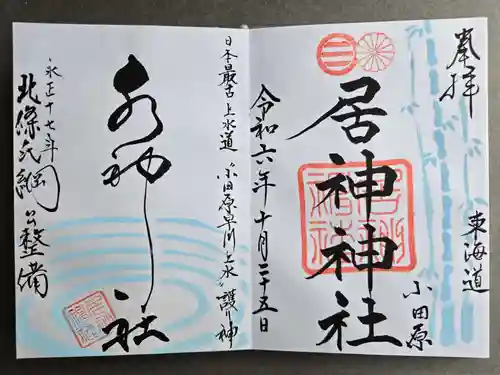 奉拝
東海道
小田原
居神神社
令和六年十月二十五日
日本最古上水道"小田原早川上水"護り神
水神社
永正十七年
北條氏綱公整備